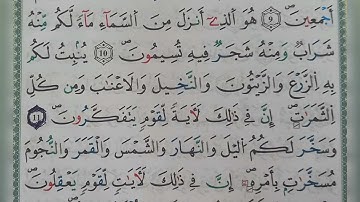 أَجْمَعِينَ ۝٩ هُوَ ٱلَّذِے أَنزَلَ مِنَ ٱلسَّمَآءِ مَآءٗ لَّكُم مِّنْهُ
شَرَابٞ وَمِنْهُ شَجَرٞ فِيهِ تُسِيمُونَ ۝١٠ يُنۢبِتُ لَكُم
بِهِ ٱلزَّرْعَ وَٱلزَّيْتُونَ وَٱلنَّخِيلَ وَٱلْأَعْنَٰبَ وَمِن كُلِّ
ٱلثَّمَرَٰتِ إِنَّ فِے ذَٰلِكَ لَأٓيَةٗ لِّقَوْمٖ يَتَفَكَّرُونَ ۝١١
وَسَخَّرَ لَكُمُ ٱلَّيْلَ وَٱلنَّهَارَ وَٱلشَّمْسَ وَٱلْقَمَرَ وَٱلنُّجُومَ
مُسَخَّرَٰتِۭ بِأَمْرِهِۦٓ إِنَّ فِے ذَٰلِكَ لَأٓيَٰتٖ لِّقَوْمٖ يَعْقِلُونَ